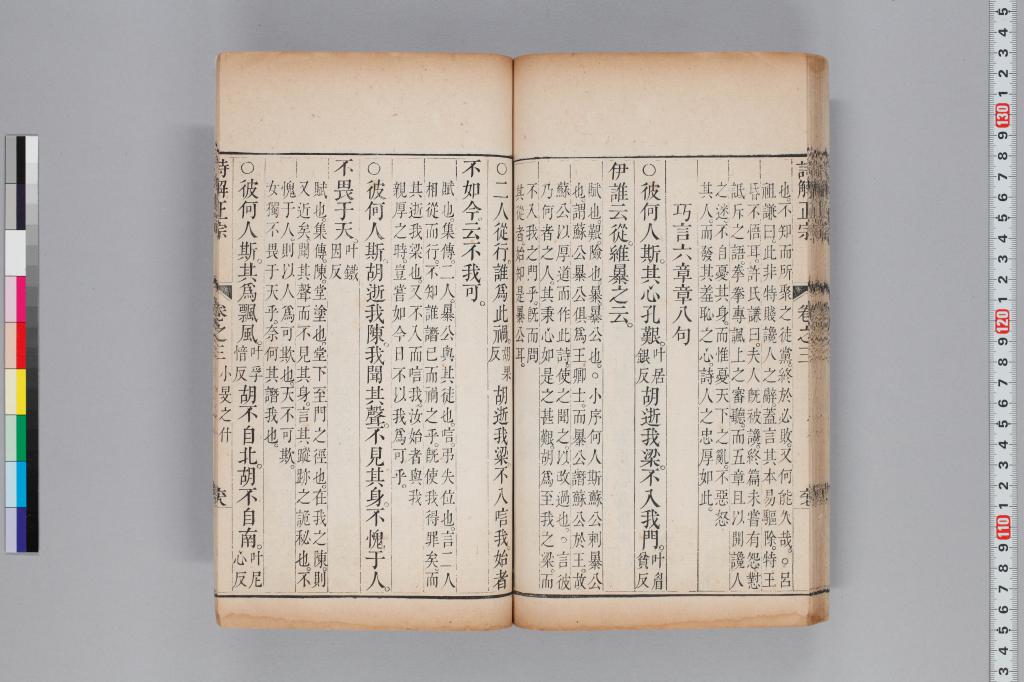 也不知而所聚之徒黨終於必敗又何能久哉○呂
祖謙曰此非特賤讒人之辭蓋言其本易驅除特王
不悟耳許氏謙曰夫人旣被讒終篇未嘗有怨懟
詆斥之語拳拳專諷上之審聽而五章且以開讒人
之迷不自憂其身而惟憂天下之亂不惡怒
其人而發其羞恥之心詩人之忠厚如此
巧言六章章八句
○彼何人斯其心孔艱叶居銀反胡逝我梁不入我門叶眉貧反
伊誰云從維暴之云
賦也艱險也暴暴公也○小序何人斯蘇公刺暴公
也謂蘇公暴公俱爲王卿士而暴公譖蘇公於王故
蘇公以厚道而作此詩使之聞之以改過也○言彼
乃何者之人其秉心如是之甚艱胡爲至我之梁而
不入我之門乎旣而問
其從者始知是暴公耳
○二人從行誰爲此禍胡果反胡逝我梁不入唁我始者
不如今云不我可
賦也集傳二人暴公與其徒也唁弔失位也言二人
相從而行不知誰譖已而禍之乎旣使我得罪矣而
其逝我梁也又不入而唁我汝始者與我
親厚之時豈嘗如今日不以我爲可乎
○彼何人斯胡逝我陳我聞其聲不見其身不愧于人
不畏于天叶鐵因反
賦也集傳陳堂塗也堂下至門之徑也在我之陳則
又近矣聞其聲而不見其身言其蹤跡之詭秘也不
愧于人則以人爲可欺也天不可欺
女獨不畏于天乎奈何其譖我也
○彼何人斯其爲飄風叶孚愔反胡不自北胡不自南叶尼心反
詩解正宗 卷之三 小旻之什